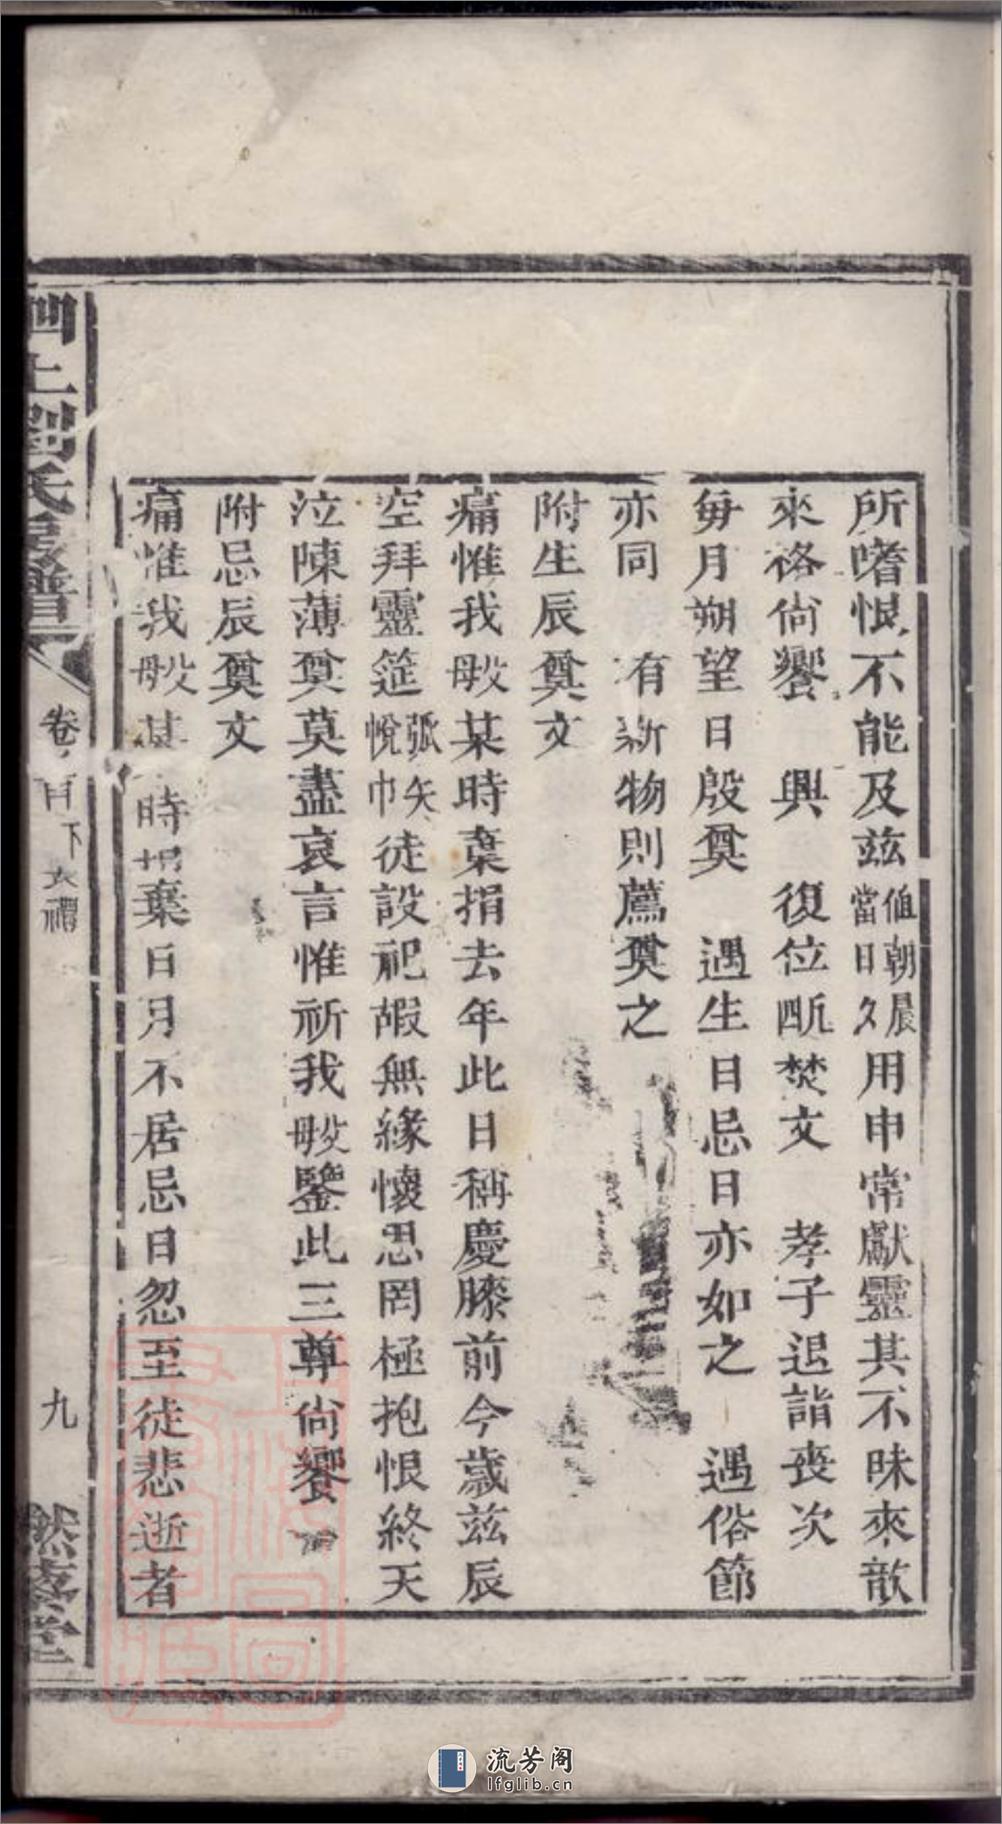 所嗜恨不能及茲值朝晨當日久用申常獻靈其不昧來歆
來格尙饗　興　復位㽉焚文　孝子退詣喪次
每月朔望日殷奠　遇生日忌日亦如之　遇俗節
亦同　有新物則薦奠之
附生辰奠文
痛惟我某時棄捐去年此日稱慶膝前今歲茲辰
空拜靈筵弧矢帨巾徒設祀嘏無緣懷思罔極抱恨終天
泣陳薄奠莫盡哀言惟祈我鑒此三尊尙饗
附忌辰奠文
痛惟我某時捐棄日月不居忌日忽至徒悲逝者
上劉氏譜
卷首下
禮
九
然藜堂
流芳阁
lfglib.cn